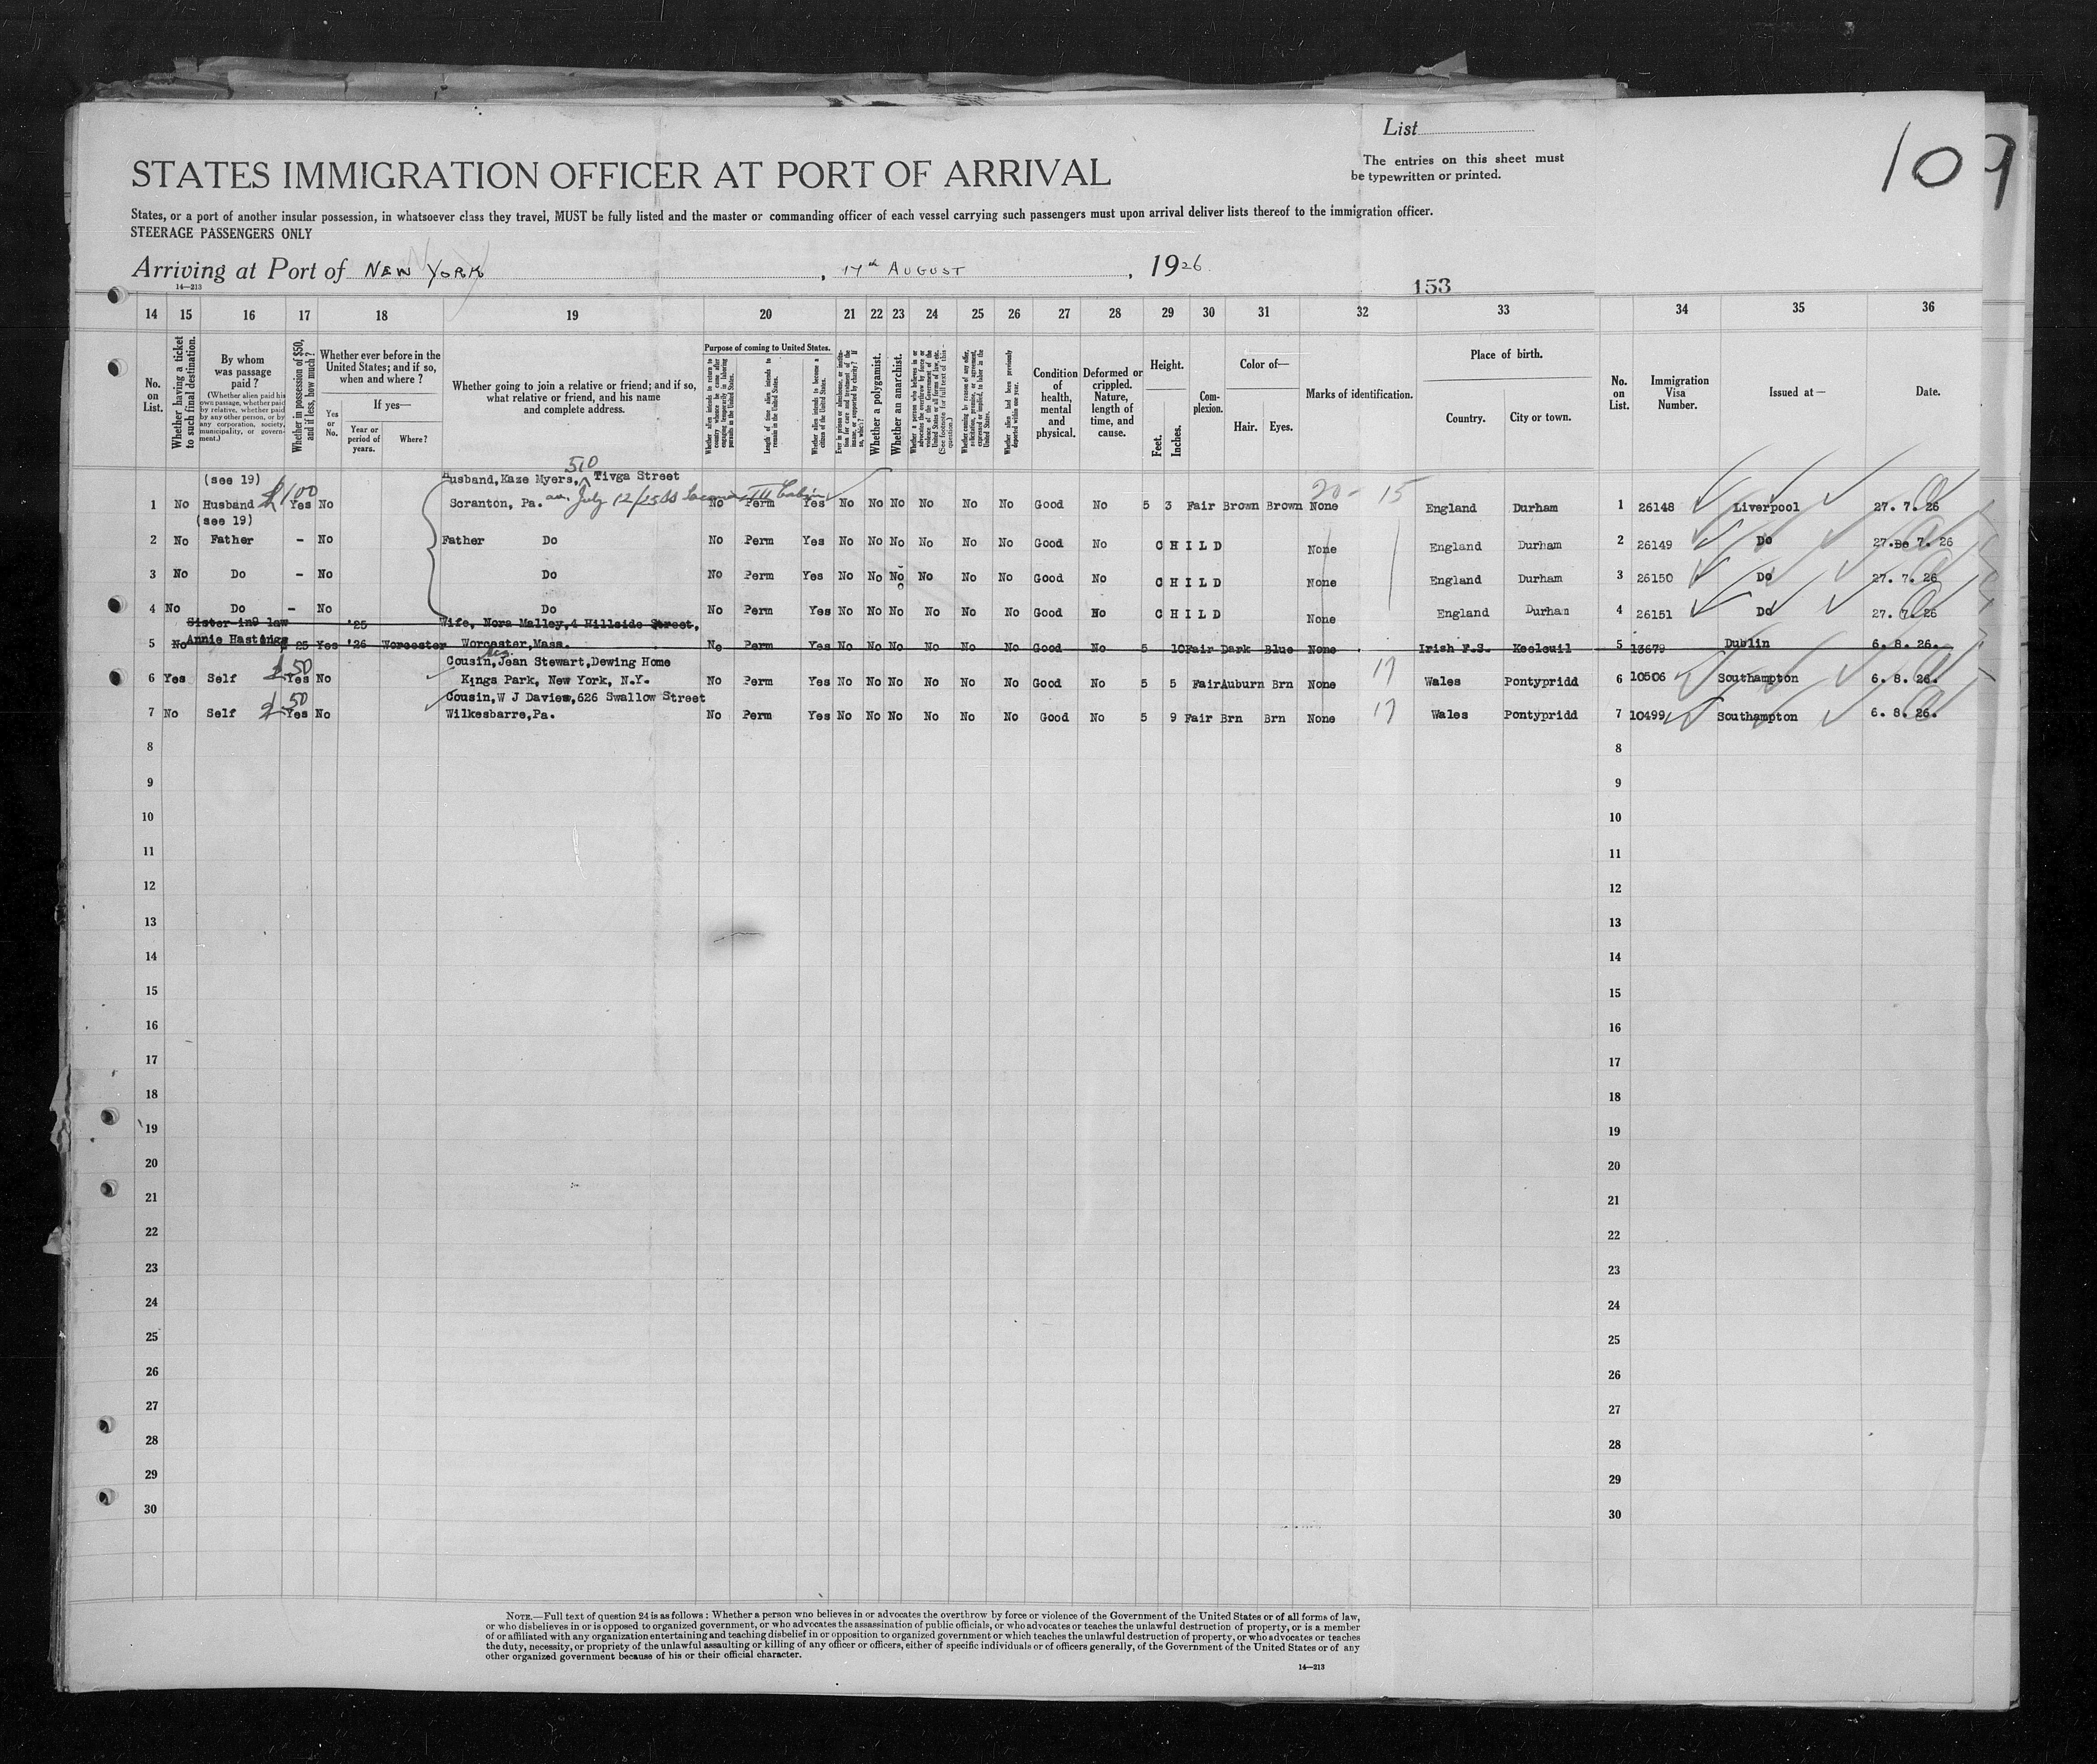 List
109
The entries on this sheet must
be typewritten or printed.
STATES IMMIGRATION OFFICER AT PORT OF ARRIVAL
States, or a port of another insular possession, in whatsoever class they travel, MUST be fully listed and the master or commanding officer of each vessel carrying such passengers must upon arrival deliver lists thereof to the immigration officer.
STEERAGE PASSENGERS ONLY
Arriving at Port of NEW YORK, 17th AUGUST, 1926
14—213
153
14 15 16 17 18 19 20 21 22 23 24 25 26 27 28 29 30 31 32 33 34 35 36
No. on List.
Whether having a ticket to such final destination.
By whom was passage paid?
(Whether alien paid his own passage, whether paid by relative, whether paid by any other person, or by any corporation, society, municipality, or government.)
Whether in possession of $50, and if less, how much?
Whether ever before in the United States; and if so, when and where?
Yes or No.
If yes—
Year or period of years.
Where?
Whether going to join a relative or friend; and if so, what relative or friend, and his name and complete address.
Purpose of coming to United States.
Whether alien intends to return to country whence he came after engaging temporarily in laboring pursuits in the United States.
Length of time alien intends to remain in the United States.
Whether alien intends to become a citizen of the United States.
Ever in prison or almshouse, or institution for care and treatment of the insane, or supported by charity? If so, which?
Whether a polygamist.
Whether an anarchist.
Whether coming by reason of any offer, solicitation, promise, or agreement, expressed or implied, to labor in the United States.
Whether alien had been previously deported within one year.
Condition of health, mental and physical.
Deformed or crippled. Nature, length of time, and cause.
Height.
Feet.
Inches.
Complexion.
Color of—
Hair.
Eyes.
Marks of identification.
Place of birth.
Country.
City or town.
No. on List.
Immigration Visa Number.
Issued at—
Date.
510
(see 19) Husband, Kaze Myers, Tivga Street
1 No Husband $100 Yes No Scranton, Pa. July 12/25 III Cabin No Perm Yes No No No No No No Good No 5 3 Fair Brown Brown None 20 - 15 England Durham 1 26148 Liverpool 27. 7. 26
(see 19)
2 No Father - No Father Do No Perm Yes No No No No No No Good No CHILD None England Durham 2 26149 Do 27. 7. 26
3 No Do - No Do No Perm Yes No No No No No No Good No CHILD None England Durham 3 26150 Do 27. 7. 26
4 No Do - No Do No Perm Yes No No No No No No Good No CHILD None England Durham 4 26151 Do 27. 7. 26
Sister-in law '25 Wife, Nora Malley, 4 Hillside Street,
5 No Annie Hastings 25 Yes '26 Worcester Worcester, Mass. No Perm Yes No No No No No No Good No 5 10 Fair Dark Blue None Irish F.S. Keeleuil 5 13679 Dublin 6. 8. 26.
$50 Cousin, Jean Stewart, Dewing Home
6 Yes Self Yes No Kings Park, New York, N.Y. No Perm Yes No No No No No No Good No 5 5 Fair Auburn Brn None 17 Wales Pontypridd 6 10506 Southampton 6. 8. 26.
$50 Cousin, W J Davies, 626 Swallow Street
7 No Self Yes No Wilkesbarre, Pa. No Perm Yes No No No No No No Good No 5 9 Fair Brn Brn None 17 Wales Pontypridd 7 10499 Southampton 6. 8. 26.
8 8
9 9
10 10
11 11
12 12
13 13
14 14
15 15
16 16
17 17
18 18
19 19
20 20
21 21
22 22
23 23
24 24
25 25
26 26
27 27
28 28
29 29
30 30
NOTE.—Full text of question 24 is as follows: Whether a person who believes in or advocates the overthrow by force or violence of the Government of the United States or of all forms of law,
or who disbelieves in or is opposed to organized government, or who advocates the assassination of public officials, or who advocates or teaches the unlawful destruction of property, or is a member
of or affiliated with any organization entertaining and teaching disbelief in or opposition to organized government or which teaches the unlawful destruction of property, or who advocates or teaches
the duty, necessity, or propriety of the unlawful assaulting or killing of any officer or officers, either of specific individuals or of officers generally, of the Government of the United States or of any
other organized government because of his or their official character.
14—213